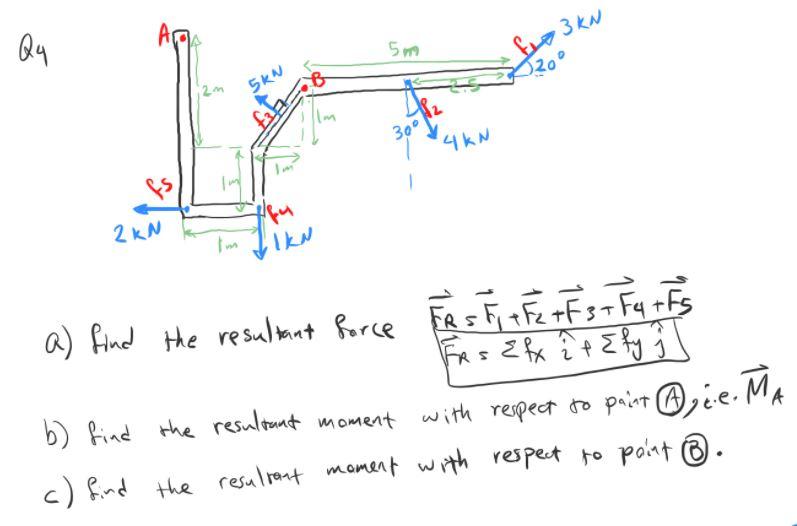 Q4
A
2m
5m
3 KN
f1
20°
5KN
B
2.5
f2
f3
1m
30°
4 KN
1m
1m
f5
f4
2 KN
1m
1KN
a) find the resultant force
F⃗R = F⃗1 + F⃗2 + F⃗3 + F⃗4 + F⃗5
F⃗R = Σfx î + Σfy ĵ
b) find the resultant moment with respect to point Ⓐ, i.e. M⃗A
c) find the resultant moment with respect to point Ⓑ.